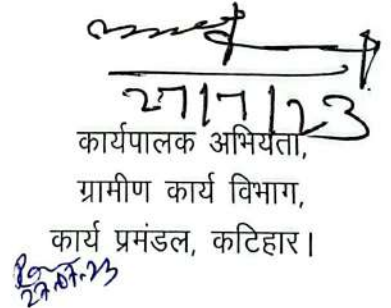 27/7/23
कार्यपालक अभियंता,
ग्रामीण कार्य विभाग,
कार्य प्रमंडल, कटिहार।
27.07.23